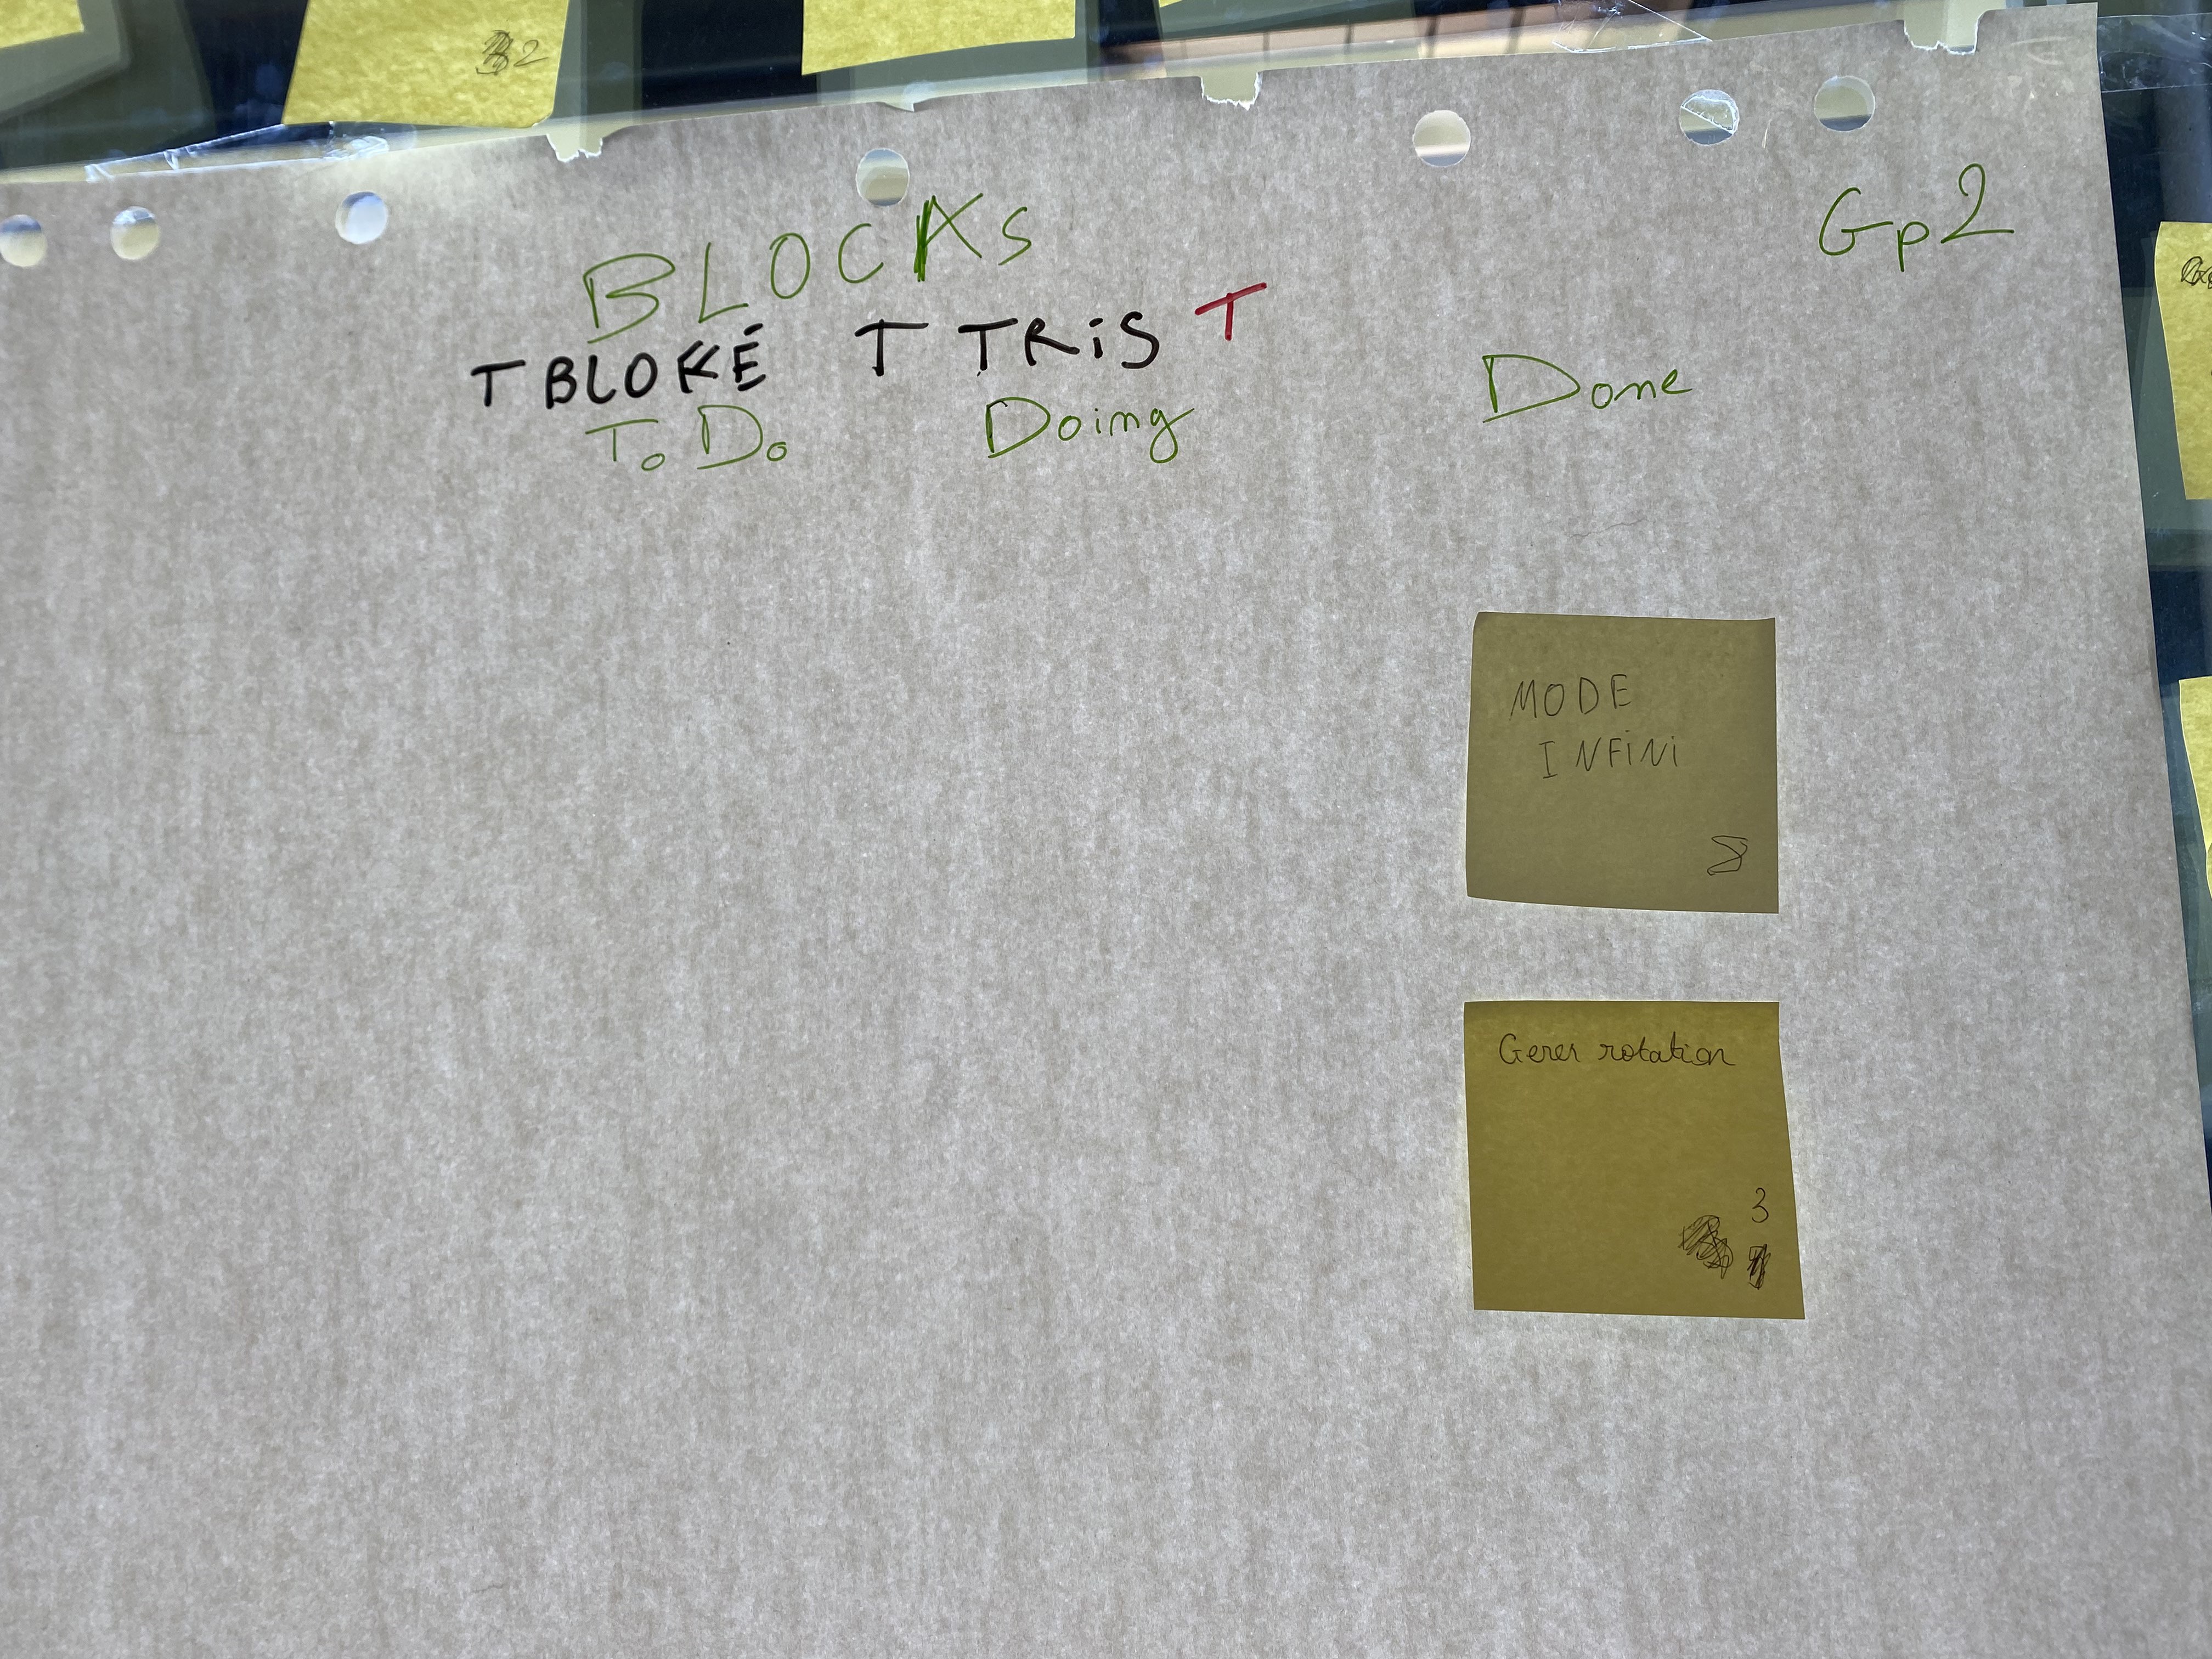 2
BLOCKs
Gp2
T BLOKÉ T TRiS T
To Do
Doing
Done
MODE
INFiNi
Gerer rotation
3